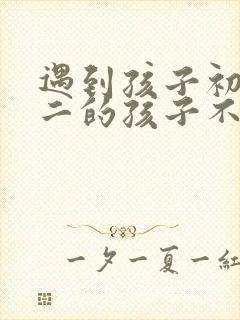 遇到孩子初
二的孩子不
一夕一夏一紅